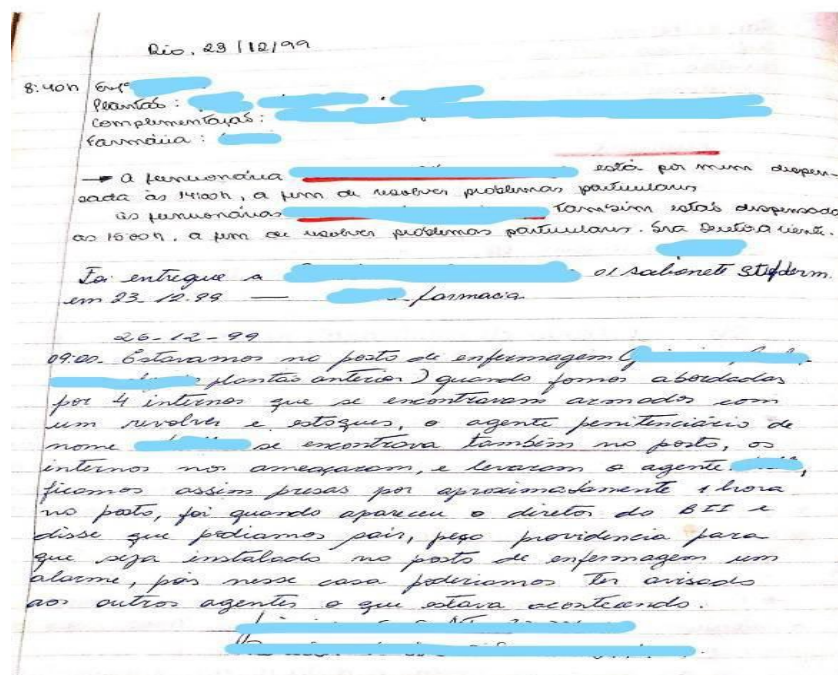 Rio, 23/12/99
8:40h Enfª
Plantão:
Complementação:
Farmácia:
→ A funcionária está por mim dispen-
sada às 14:00h, a fim de resolver problemas particulares
as funcionárias também estão dispensada
as 15:00h, a fim de resolver problemas particulares. Sra Diretora ciente.
Foi entregue a 01 sabonete Stiefderm.
em 23-12-99 — farmacia
26-12-99
09:00. Estavamos no posto de enfermagem (
plantão anterior) quando fomos abordadas
por 4 internos que se encontravam armados com
um revolver e estoques, o agente penitenciário de
nome se encontrava também no posto, os
internos nos ameaçaram, e levaram o agente ,
ficamos assim presas por aproximadamente 1 hora
no posto, foi quando apareceu o diretor do BII e
disse que podiamos sair, peço providencia para
que seja instalado no posto de enfermagem um
alarme, pois nesse caso poderiamos ter avisado
aos outros agentes o que estava acontecendo.